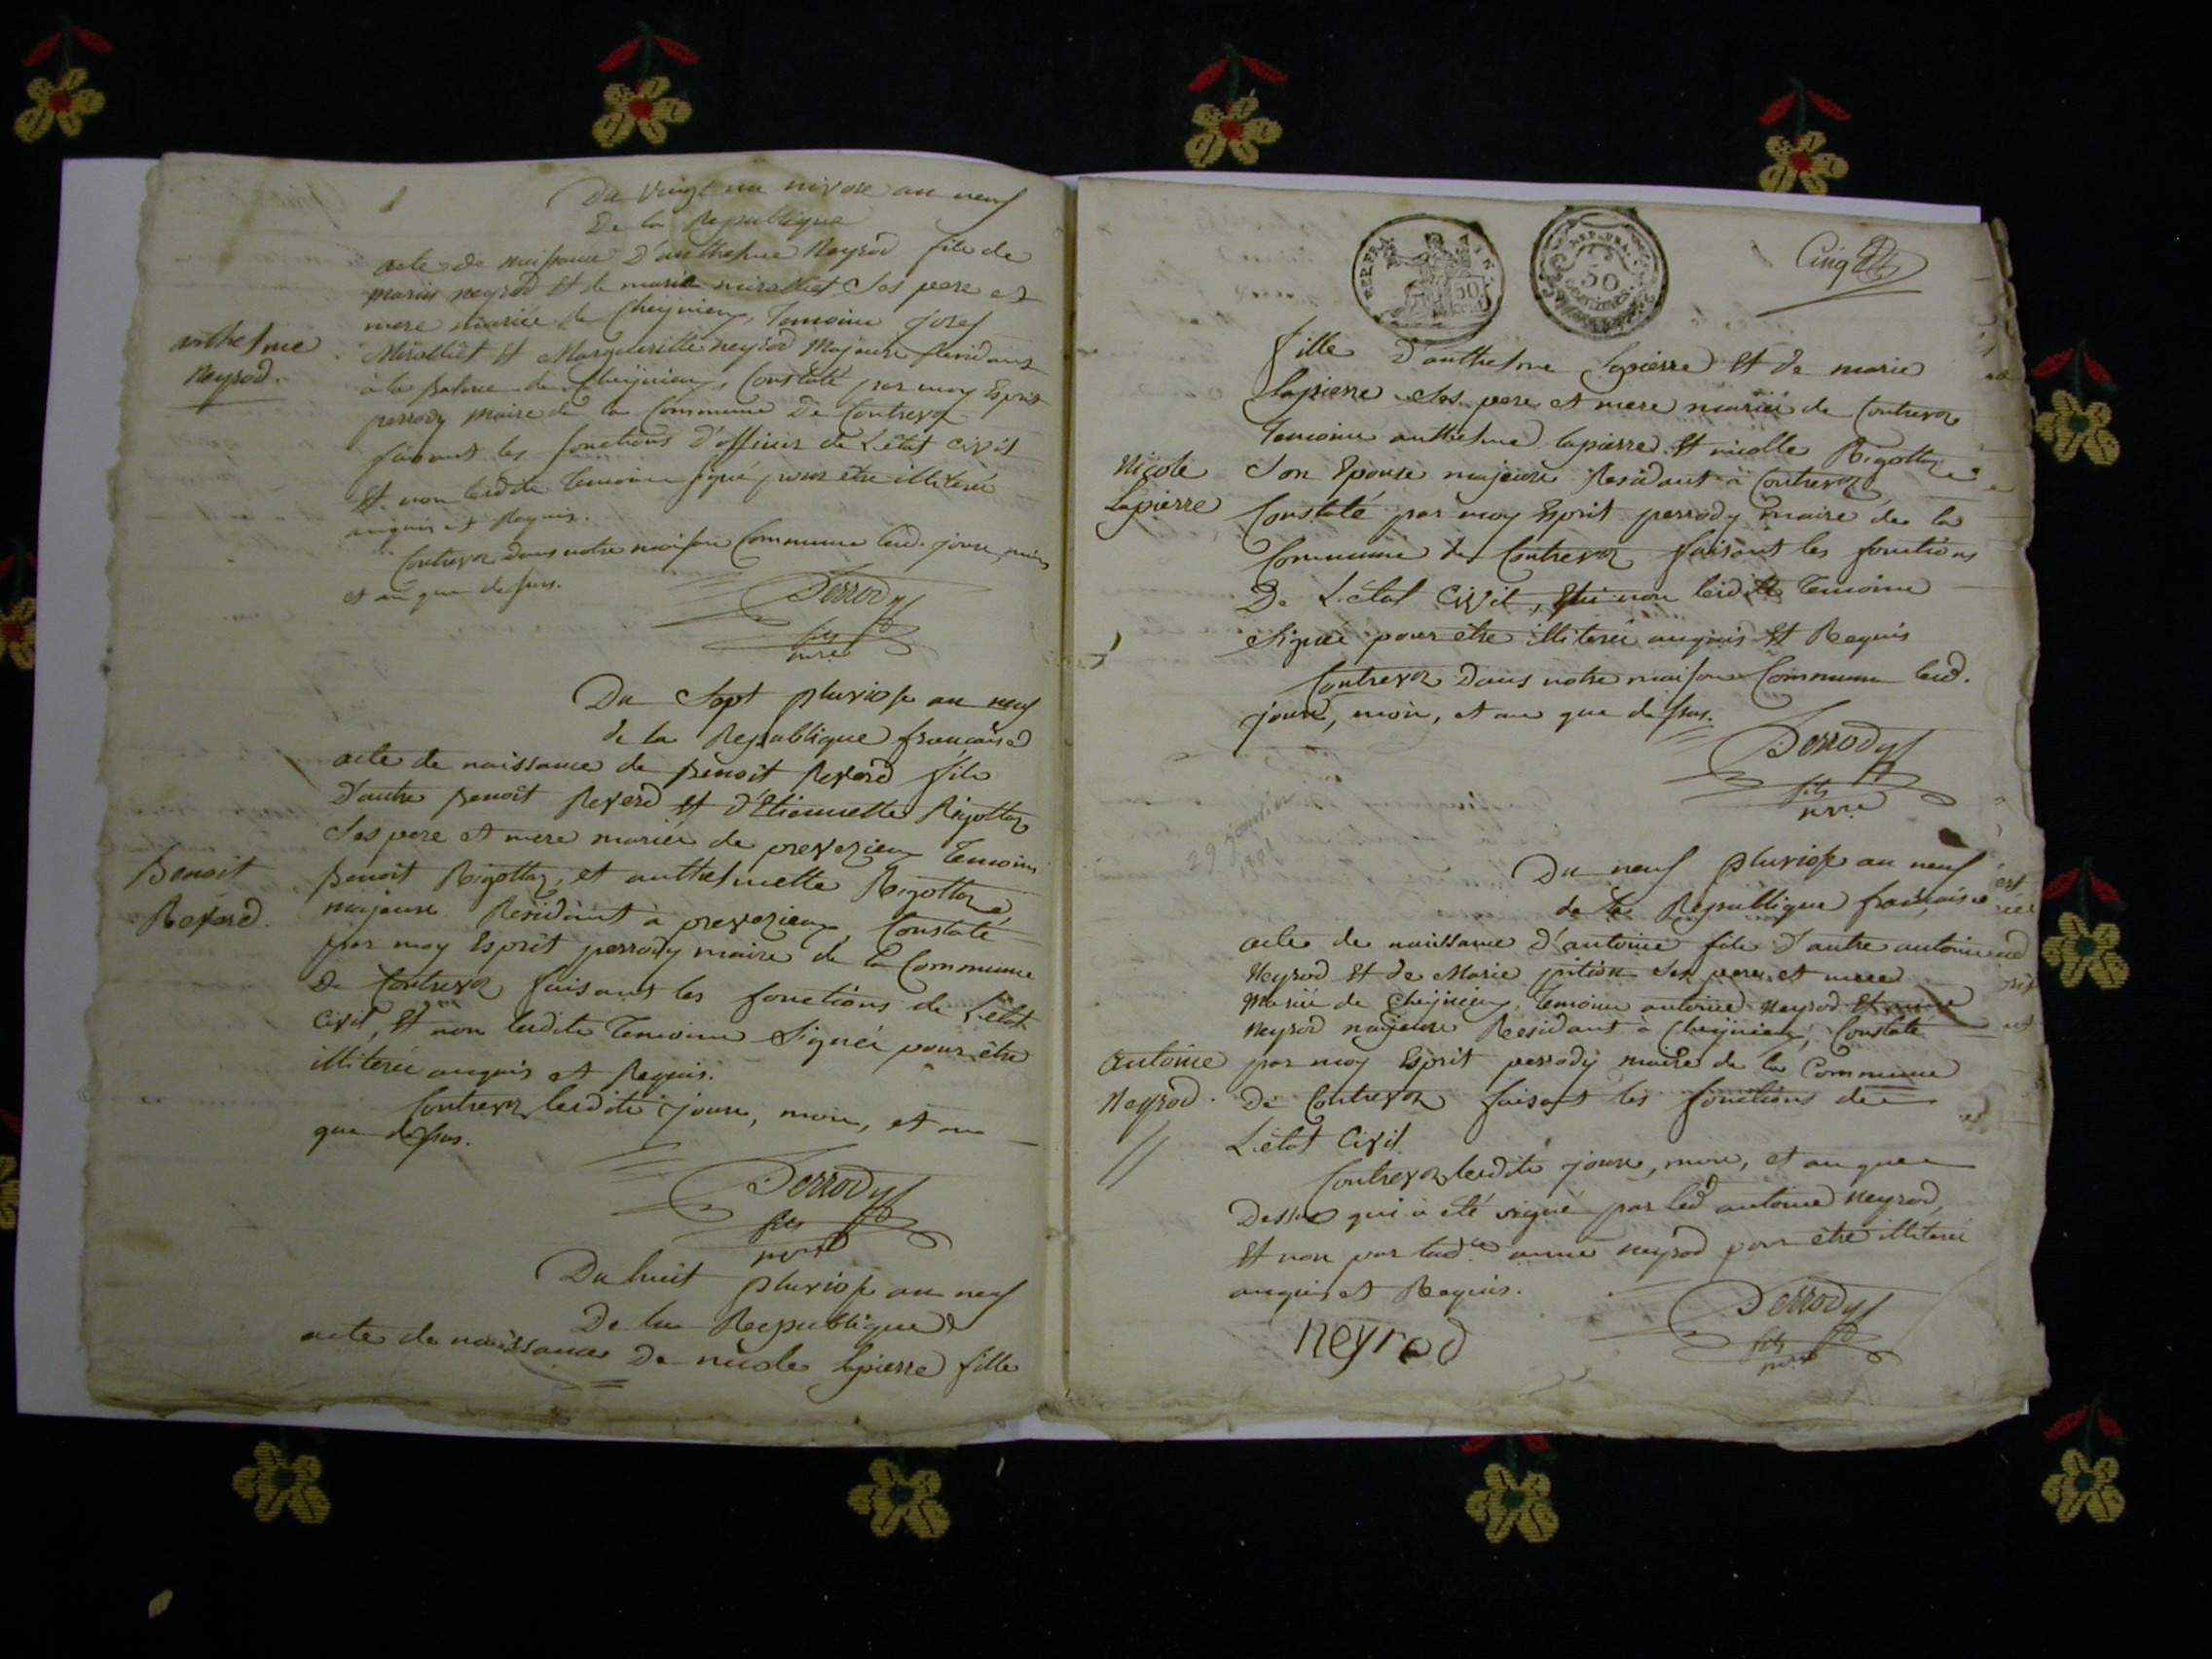 Du vingt un nivose an neuf
De la Republique
acte de naissance D'anthelme Neyrod fils de
marin neyrod Et de marie miralliet Ses pere et
mere mariés de Cheignieu, Temoins josef
Miralliet Et Margueritte neyrod Majeurs
anthelme
Neyrod.
à la de Cheignieu, Constaté par moy Esprit
perrody Maire de la Commune De Contrevoz
faisant les fonctions d'officier de L'état Civil
Et non lesdits Temoins signé pour être illiteré
enquis et Requis.
Contrevoz Dans notre maison Commune lesd. jours, mois
et an que dessus.
Perrody
fils
mre
Du Sept pluviose an neuf
de la Republique francaise
acte de naissance de Benoit Reverd fils
D'autre Benoit Reverd Et d'Etiennette Rigottaz
Ses pere et mere mariés de prevezieu Temoins
Benoit
Reverd.
Benoit Rigottaz, et anthelmette Rigottaz
majeurs Residant à prevezieu, Constaté
par moy Esprit perrody maire de la Commune
De Contrevoz faisant les fonctions de L'état
Civil, Et non lesdits Temoins Signés pour être
illiterés enquis et Requis.
Contrevoz lesdits jours, mois, et an
que dessus.
Perrody
fils
mre
Du huit pluviose an neuf
De la Republique
acte de naissance De nicole lapierre fille
REP. FRA.
50
CENT.
REP. FRA.
50
centimes.
Cinq
fille D'anthelme lapierre Et de marie
lapierre Ses pere et mere mariés de Contrevoz
Temoins anthelme lapierre Et nicolle Rigottaz
Nicole
Lapierre
Son Epouse majeurs Residant à Contrevoz
Constaté par moy Esprit perrody maire de la
Commune de Contrevoz faisant les fonctions
De L'état Civil, Et non lesdits Temoins
Signés pour être illiterés enquis Et Requis
Contrevoz Dans notre maison Commune lesd.
jours, mois, et an que dessus.
Perrody
fils
mre
29 janvier
1801
Du neuf pluviose an neuf
de la Republique francaise
acte de naissance d'antoine fils d'autre antoine
Neyrod Et de Marie pition Ses pere et mere
Mariés de Cheignieu, Temoins antoine Neyrod Et anne
neyrod majeurs Residant à Cheignieu, Constaté
Antoine
Neyrod.
par moy Esprit perrody maire de la Commune
De Contrevoz faisant les fonctions de
L'état Civil
Contrevoz lesdits jours, mois, et an que
Dessus qui a été signé par led antoine Neyrod,
Et non par lad.te anne neyrod pour être illiteré
enquis et Requis.
neyrod
Perrody
fils
mre